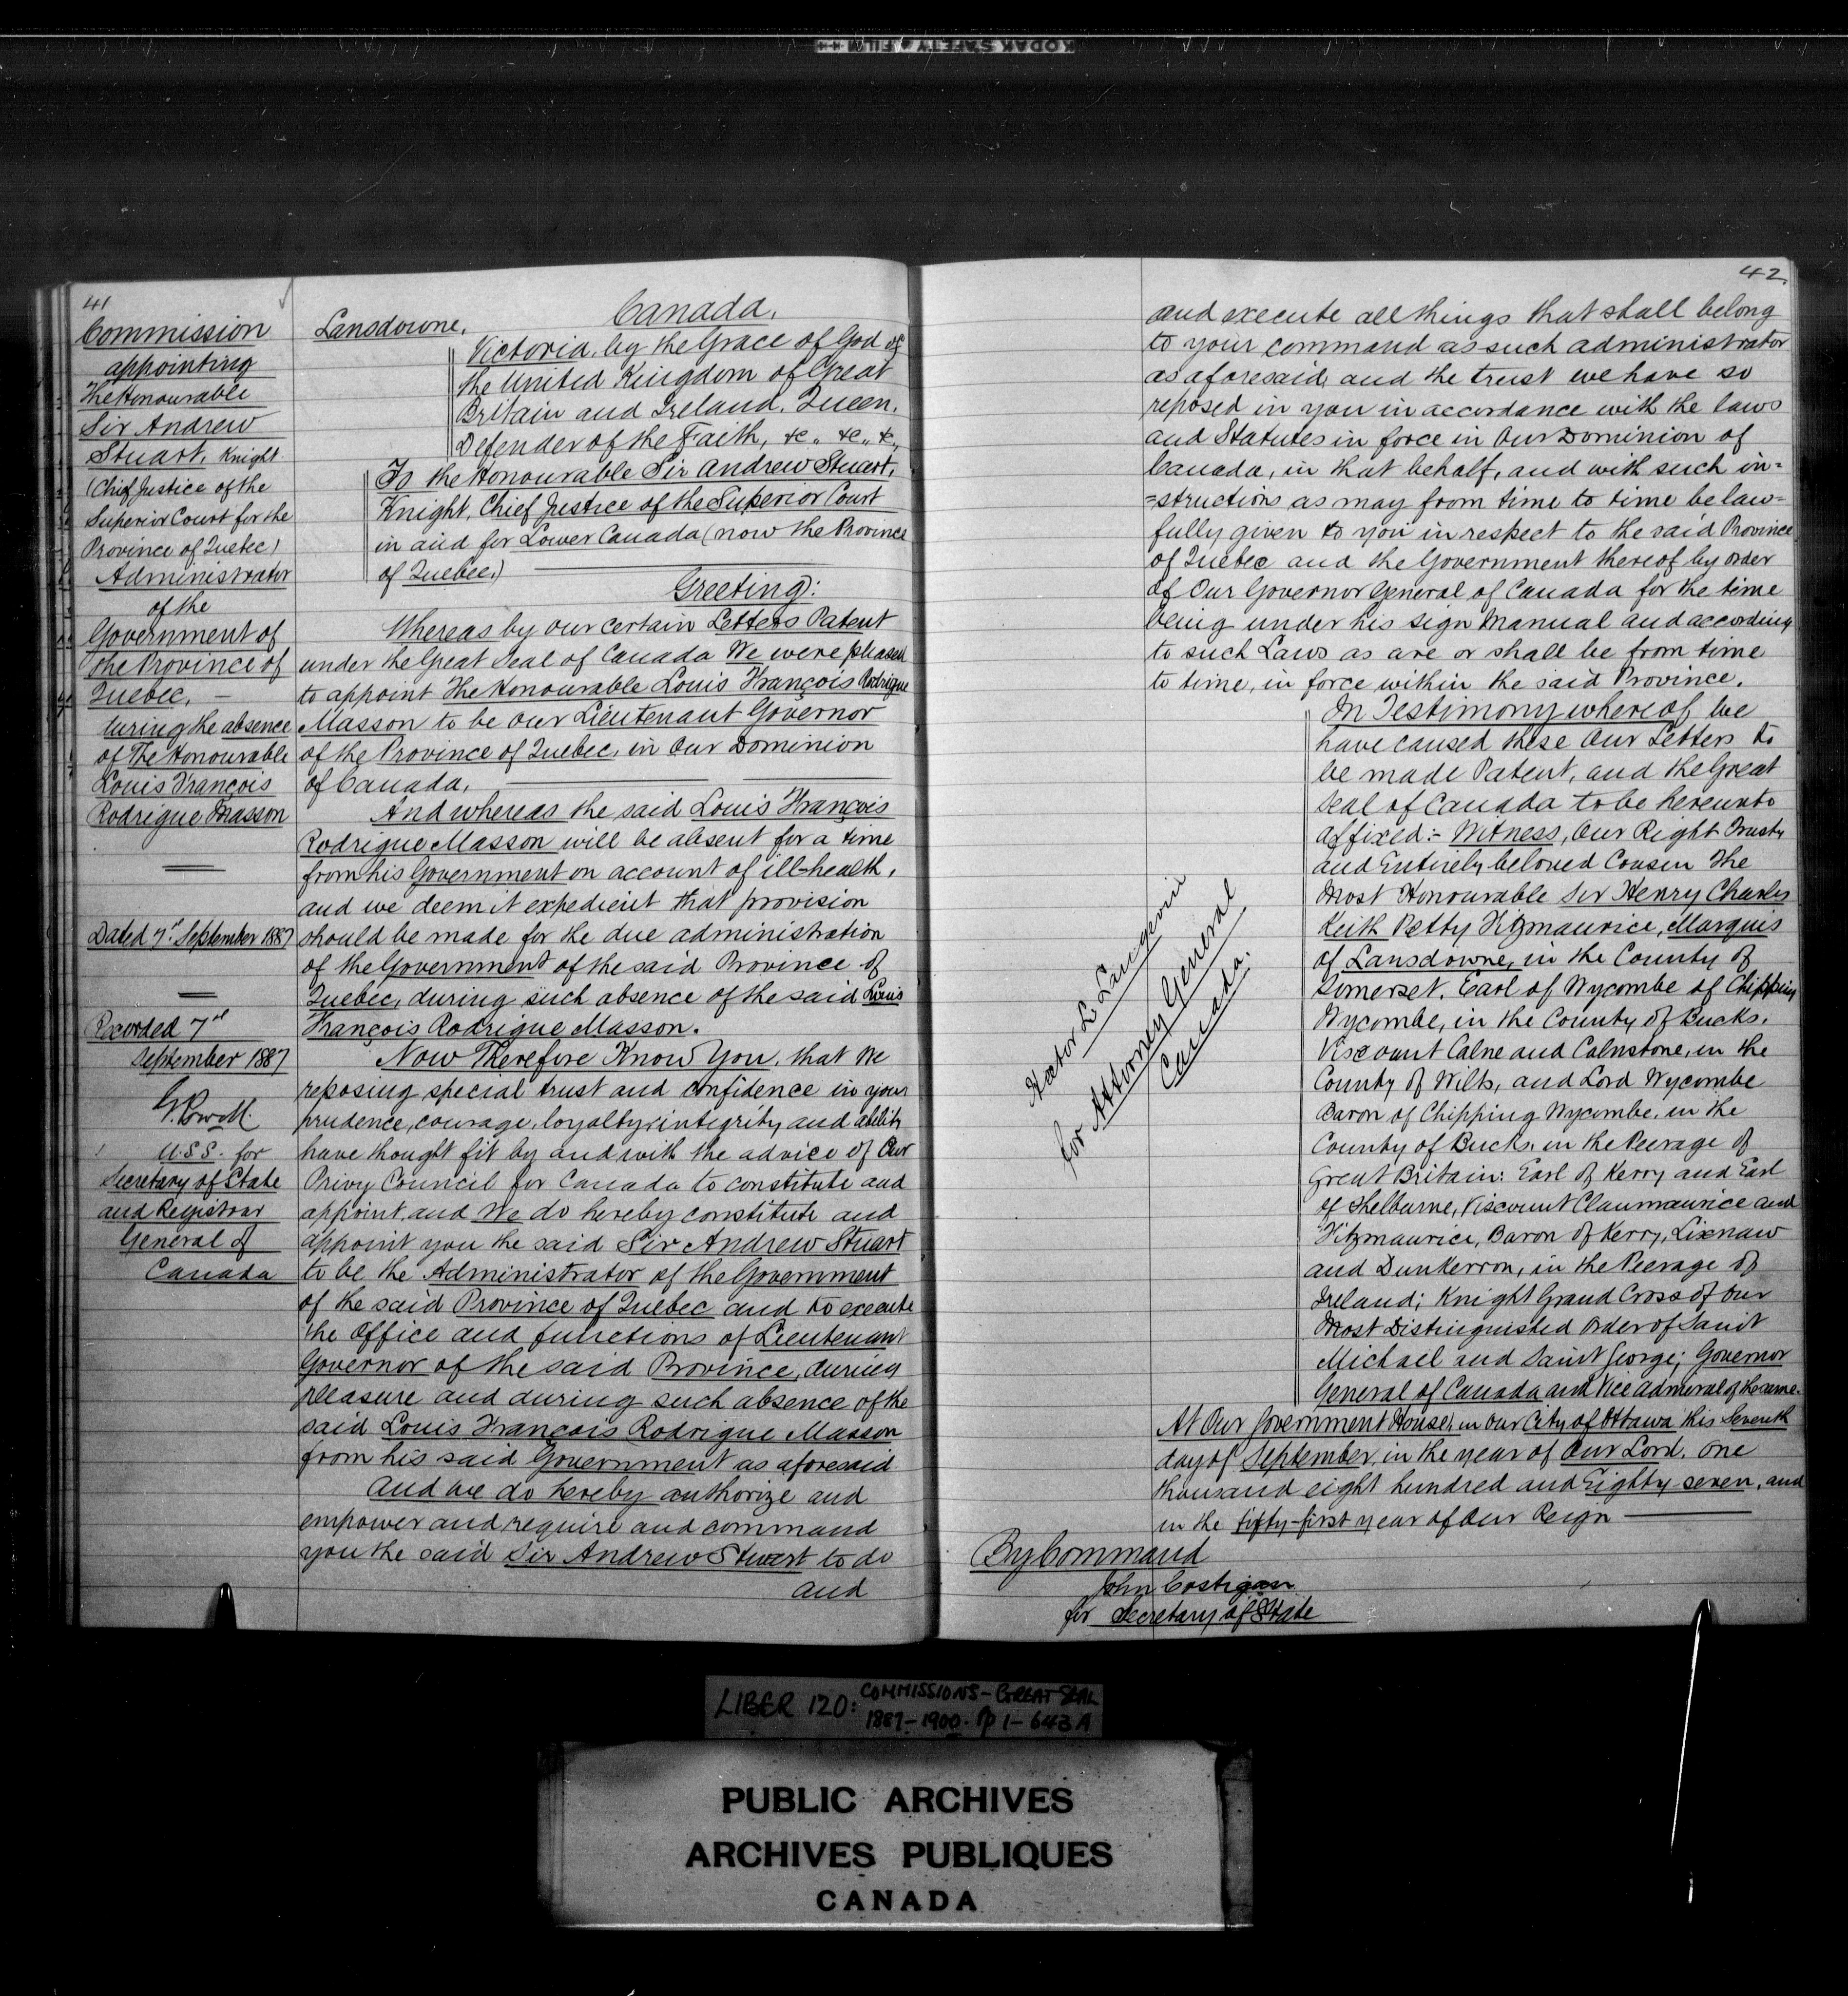 KODAK SAFETY FILM ++
41
Commission
appointing
The Honourable
Sir Andrew
Stuart, Knight
(Chief Justice of the
Superior Court for the
Province of Quebec)
Administrator
of the
Government of
the Province of
Quebec, —
during the absence
of The Honourable
Louis François
Rodrigue Masson
Dated 7th September 1887
Recorded 7th
September 1887
G. Powell
U.S.S. for
Secretary of State
and Registrar
General of
Canada
Canada.
Lansdowne.
Victoria, by the Grace of God of
the United Kingdom of Great
Britain and Ireland, Queen,
Defender of the Faith, &c., &c., &c.,
To the Honourable Sir Andrew Stuart,
Knight, Chief Justice of the Superior Court
in and for Lower Canada (now the Province
of Quebec,)
Greeting:
Whereas by our certain Letters Patent
under the Great Seal of Canada We were pleased
to appoint The Honourable Louis François Rodrigue
Masson to be Our Lieutenant Governor
of the Province of Quebec, in Our Dominion
of Canada,
And whereas the said Louis François
Rodrigue Masson will be absent for a time
from his Government on account of ill-health,
and we deem it expedient that provision
should be made for the due administration
of the Government of the said Province of
Quebec, during such absence of the said Louis
François Rodrigue Masson.
Now Therefore Know You, that We
reposing special trust and confidence in your
prudence, courage, loyalty, integrity and ability
have thought fit by and with the advice of Our
Privy Council for Canada to constitute and
appoint, and We do hereby constitute and
appoint you the said Sir Andrew Stuart
to be the Administrator of the Government
of the said Province of Quebec and to execute
the Office and functions of Lieutenant
Governor of the said Province, during
pleasure and during such absence of the
said Louis François Rodrigue Masson
from his said Government as aforesaid
And we do hereby authorize and
empower and require and command
you the said Sir Andrew Stuart to do
and
42.
and execute all things that shall belong
to your command as such administrator
as aforesaid, and the trust we have so
reposed in you in accordance with the laws
and Statutes in force in Our Dominion of
Canada, in that behalf, and with such in=
=structions as may from time to time be law=
fully given to you in respect to the said Province
of Quebec and the Government thereof by order
of Our Governor General of Canada for the time
being under his sign Manual and according
to such Laws as are or shall be from time
to time, in force within the said Province.
In Testimony whereof We
have caused these Our Letters to
be made Patent, and the Great
Seal of Canada to be hereunto
affixed:- Witness, Our Right Trusty
and Entirely beloved Cousin The
Most Honourable Sir Henry Charles
Keith Petty Fitzmaurice, Marquis
of Lansdowne, in the County of
Somerset, Earl of Wycombe of Chipping
Wycombe, in the County of Bucks,
Viscount Calne and Calnstone, in the
County of Wilts, and Lord Wycombe
Baron of Chipping Wycombe, in the
County of Bucks, in the Peerage of
Great Britain: Earl of Kerry and Earl
of Shelburne, Viscount Clanmaurice and
Fitzmaurice, Baron of Kerry, Lixnaw
and Dunkerron, in the Peerage of
Ireland; Knight Grand Cross of Our
Most Distinguished Order of Saint
Michael and Saint George; Governor
General of Canada and Vice Admiral of the same.
At Our Government House, in Our City of Ottawa this Seventh
day of September, in the year of Our Lord, one
thousand eight hundred and Eighty seven, and
in the fifty-first year of Our Reign
Hector L. Langevin
for Attorney General
Canada.
By Command
John Costigan
for Secretary of State
LIBER 120: COMMISSIONS - GREAT SEAL
1887-1900. pp 1-643A
PUBLIC ARCHIVES
ARCHIVES PUBLIQUES
CANADA